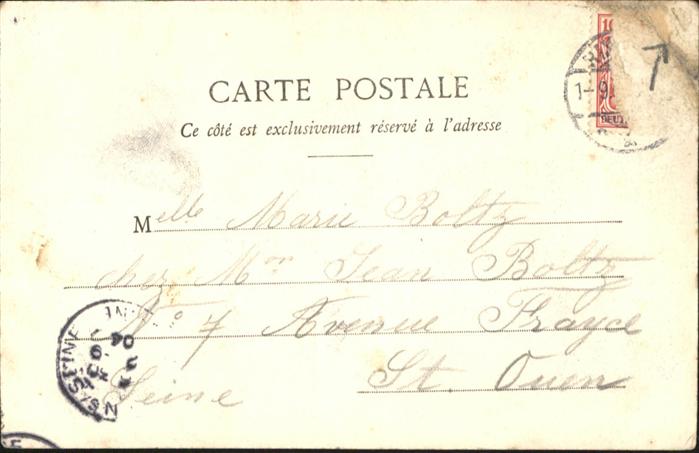 CARTE POSTALE
Ce côté est exclusivement réservé à l'adresse
Melle Marie Boltz
chez Mr Jean Boltz
No 7 Avenue Frayce
St. Ouen
Seine
1-9
DEUT
04